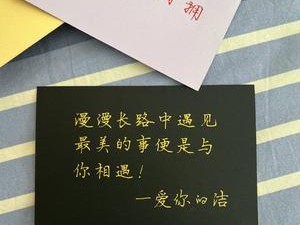 拥
漫漫长路中遇见
最美的事便是与
你相遇！
—爱你的洁